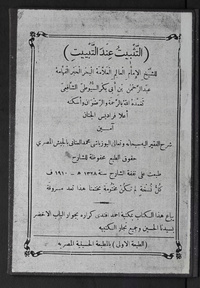 ﴿ التثبيت عند التبييت ﴾
للشيخ الإمام العالم العلامة البحر الحبر الفهامة
عبد الرحمن بن أبي بكر السيوطي الشافعي
تغمده الله بالرحمة والرضوان وأسكنه
أعلا فراديس الجنان
آمين
شرح الفقير اليه سبحانه وتعالى اليوزباشي محمد بالجيش المصري
حقوق الطبع محفوظة للشارح
طبعت على نفقة الشارح سنة ١٣٢٨ هـ - ١٩١٠ م
كل نسخة لم تكن مختومة بختمنا هذا تعد مسروقة
يباع هذا الكتاب بمكتبة افندى كراره بجوار الباب الاخضر
لسيدنا الحسين وجميع
﴿ الطبعة الاولى ﴾ بالمطبعة الحسينية المصريه